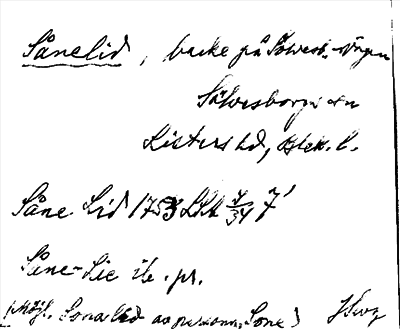 Sånelid, backe på Sölvesb.-vägen
Sölvesborgs sn
Listers hd, Blek. l.
Såne Lid 1753 LSA
Såne-Lie ib. pr.
(Möjl. Sona lid av personn. Sone)